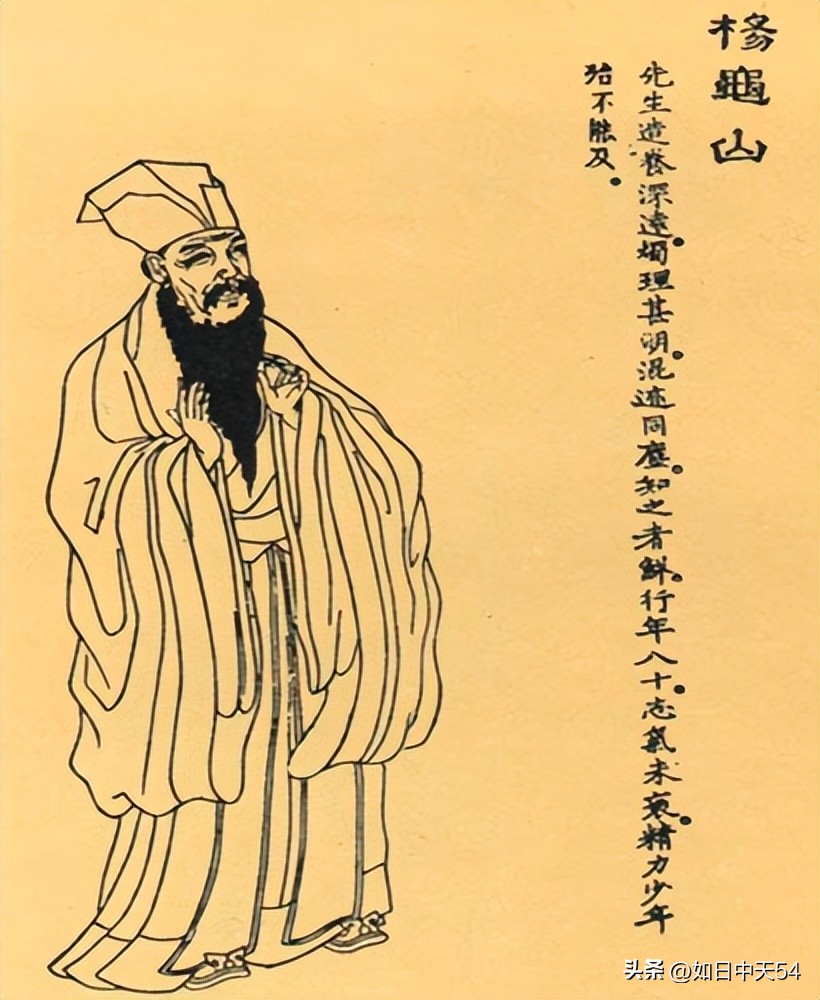 楊龜山
先生造養深遠。燭理甚明。混迹同塵。知之者鮮。行年八十。志氣未衰。精力少年
殆不能及。
头条 @如日中天54